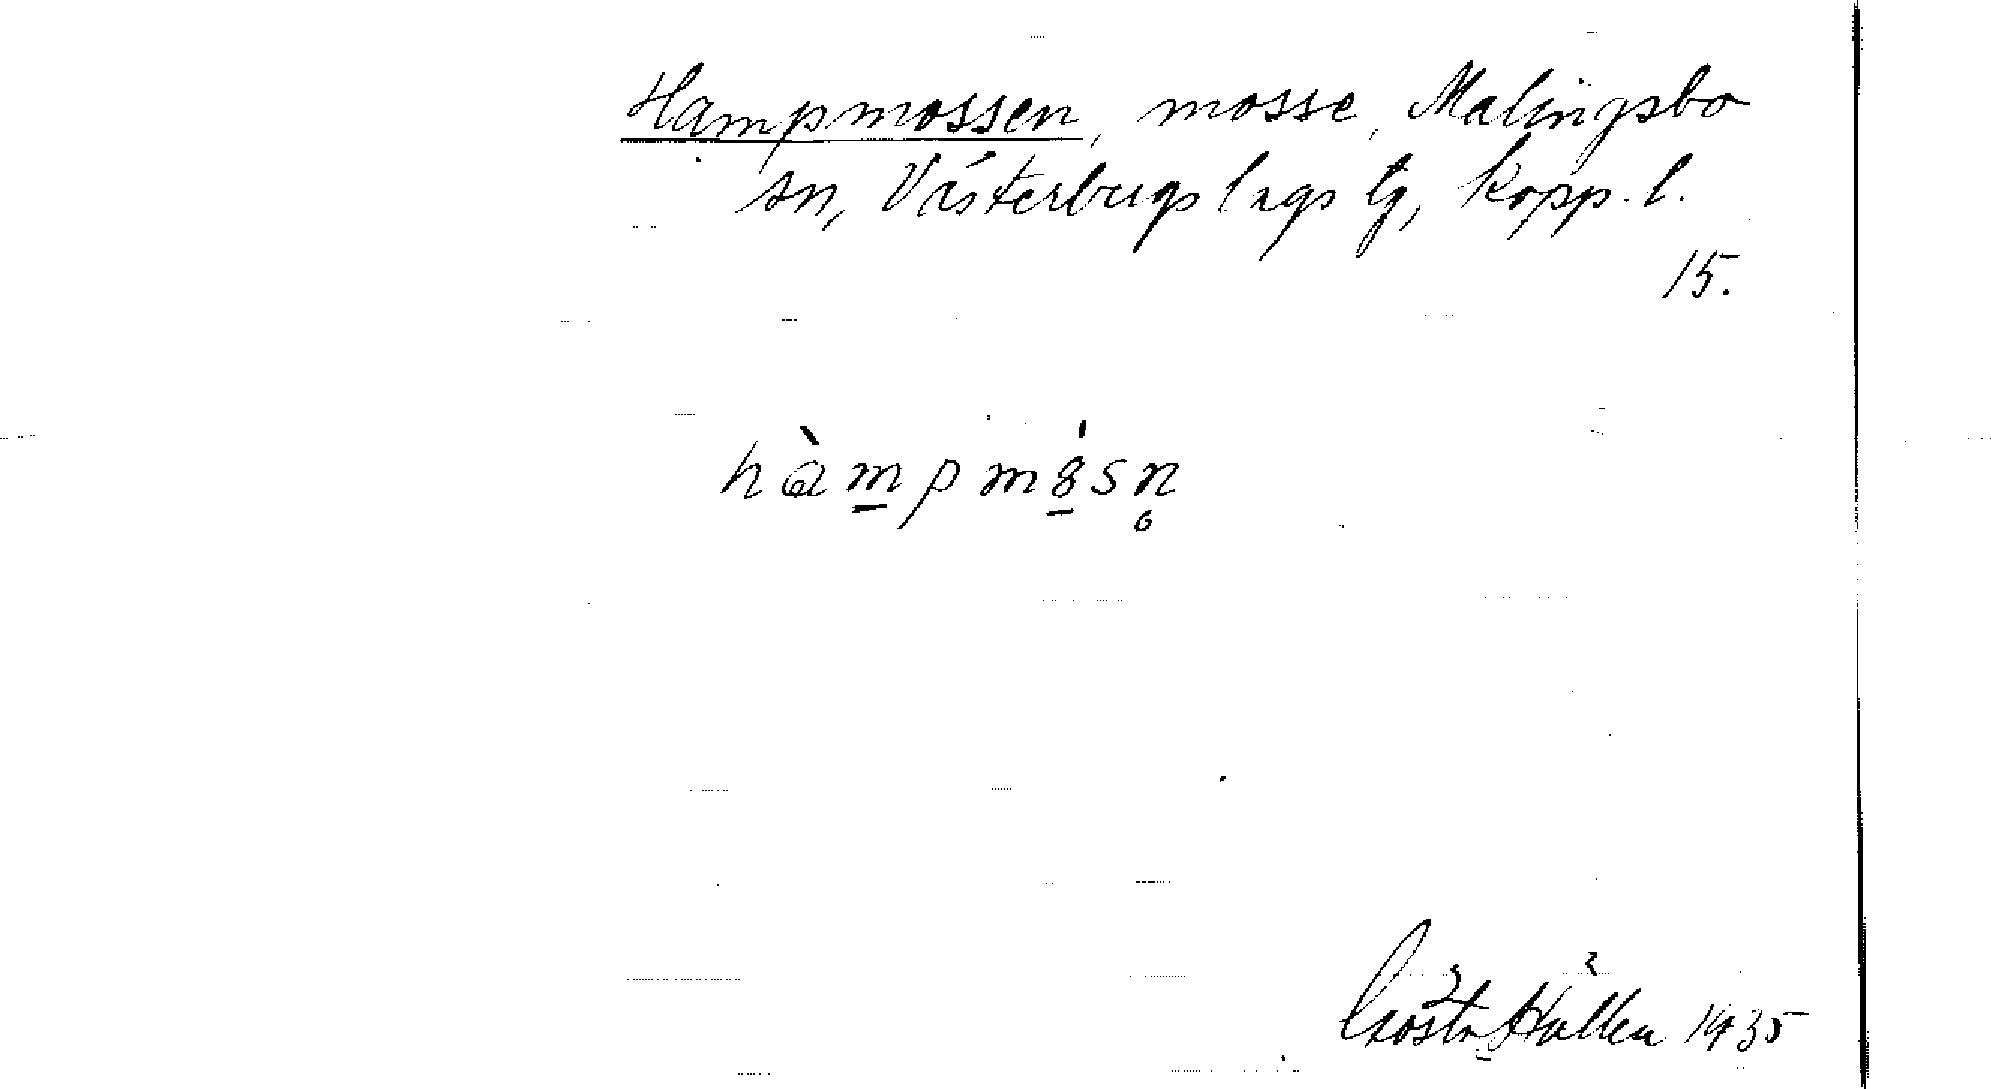 Hampmossen, mosse, Malingsbo
sn, Västerbergslags tg, Kopp. l.
15.
hàmpmȣ́sn̥
Gösta Hallen 1935